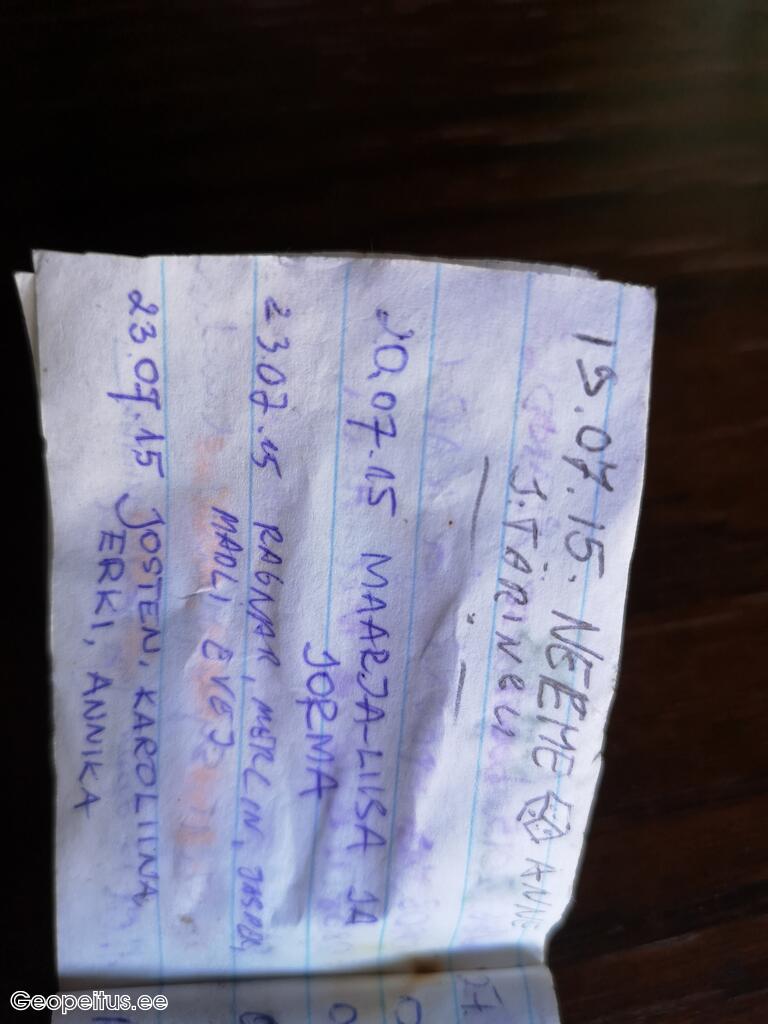 19.07.15. NEEME ANNE
20.07.15 MAARJA-LIISA JA
JORMA
23.07.15 RAGNAR, MERLIN,
MADLI
23.07.15 JOSTEN, KAROLIINA,
ERKI, ANNIKA
Geopeitus.ee